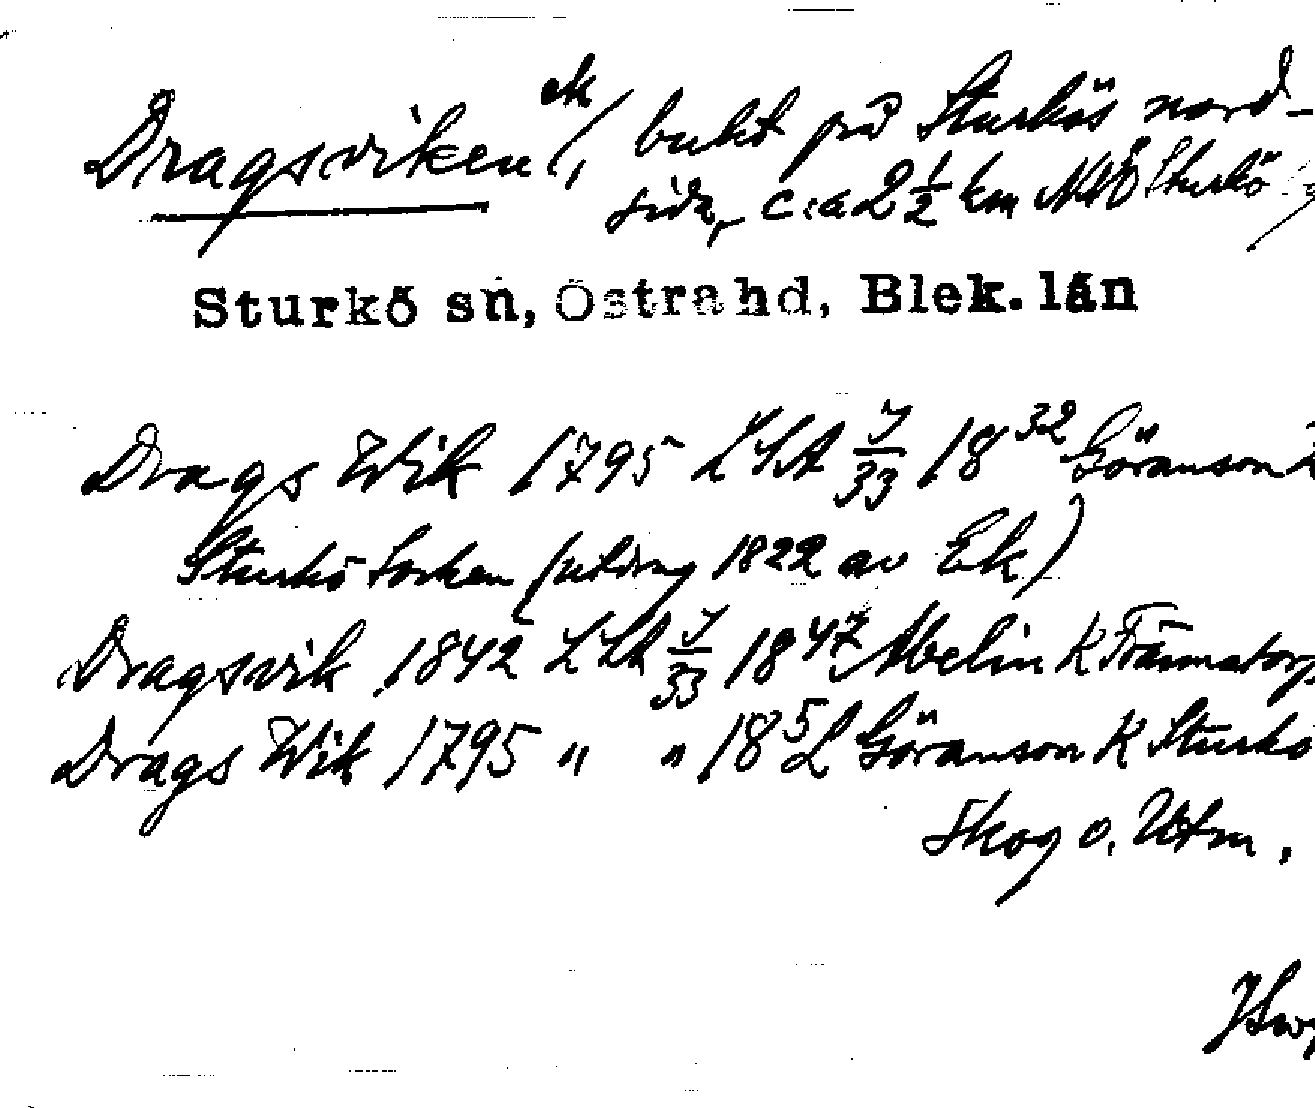 Dragsviken ek/, bukt på Sturkös nord-
sida, c:a 2½ km NNÖ Sturkö
Sturkö sn, Östra hd, Blek. län
Drags Wik 1795 LSA J/33 18³² Göranson K
Sturkö Socken (utdrag 1822 av Ek)
Dragsvik 1842 LSA J/33 18⁴⁷ Abelin K Främmatorp
Drags Wik 1795 " " 18⁵ L Göranson K Sturkö
Skog o. Utm.